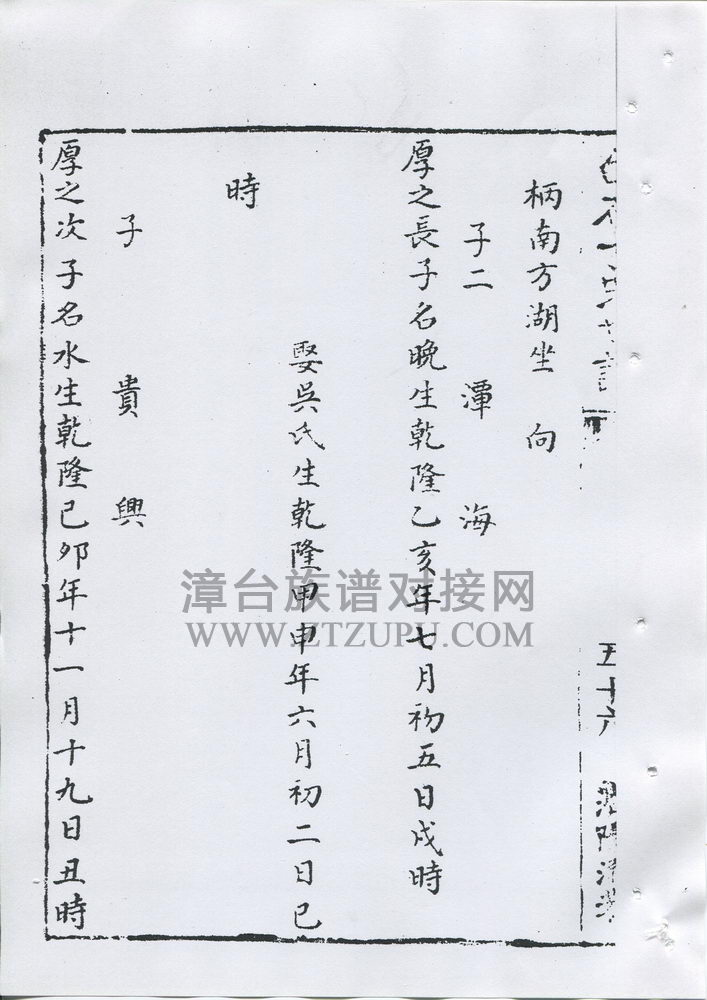 五十六
柄南方湖坐 向
子二 潭 海
厚之長子名晚生乾隆乙亥年七月初五日戌時
娶吳氏生乾隆甲申年六月初二日巳
時
子 貴 興
厚之次子名水生乾隆己卯年十一月十九日丑時
漳台族谱对接网
WWW.ZTZUPU.COM